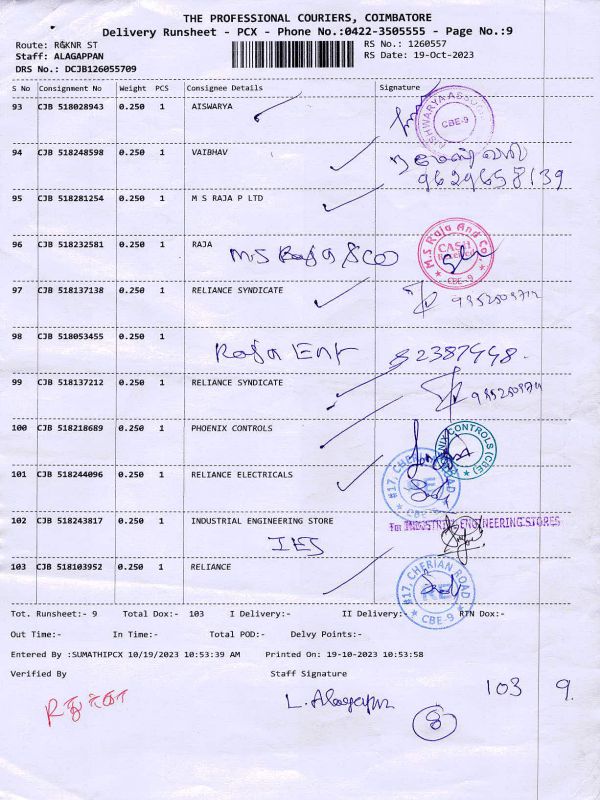 THE PROFESSIONAL COURIERS, COIMBATORE
Delivery Runsheet - PCX - Phone No.:0422-3505555 - Page No.:9
Route: R&KNR ST
RS No.: 1260557
Staff: ALAGAPPAN
RS Date: 19-Oct-2023
DRS No.: DCJB126055709
S No Consignment No Weight PCS Consignee Details Signature
93 CJB 518028943 0.250 1 AISWARYA
AISHWARYA ASSOC
CBE-9
94 CJB 518248598 0.250 1 VAIBHAV
9629658139
95 CJB 518281254 0.250 1 M S RAJA P LTD
96 CJB 518232581 0.250 1 RAJA
M.S Raja & Co
M.S Raja And Co
CASH
CBE-9
97 CJB 518137138 0.250 1 RELIANCE SYNDICATE
98 CJB 518053455 0.250 1
Raja Ent
99 CJB 518137212 0.250 1 RELIANCE SYNDICATE
100 CJB 518218689 0.250 1 PHOENIX CONTROLS
NIX CONTROLS (CBE)
101 CJB 518244096 0.250 1 RELIANCE ELECTRICALS
#17, CHERIAN ROAD
CBE-9
102 CJB 518243817 0.250 1 INDUSTRIAL ENGINEERING STORE
For INDUSTRIAL ENGINEERING STORES
IES
103 CJB 518103952 0.250 1 RELIANCE
#17, CHERIAN ROAD
CBE-9
Tot. Runsheet:- 9 Total Dox:- 103 I Delivery:- II Delivery:- RTN Dox:-
Out Time:- In Time:- Total POD:- Delvy Points:-
Entered By :SUMATHIPCX 10/19/2023 10:53:39 AM Printed On: 19-10-2023 10:53:58
Verified By Staff Signature
103 9.
8